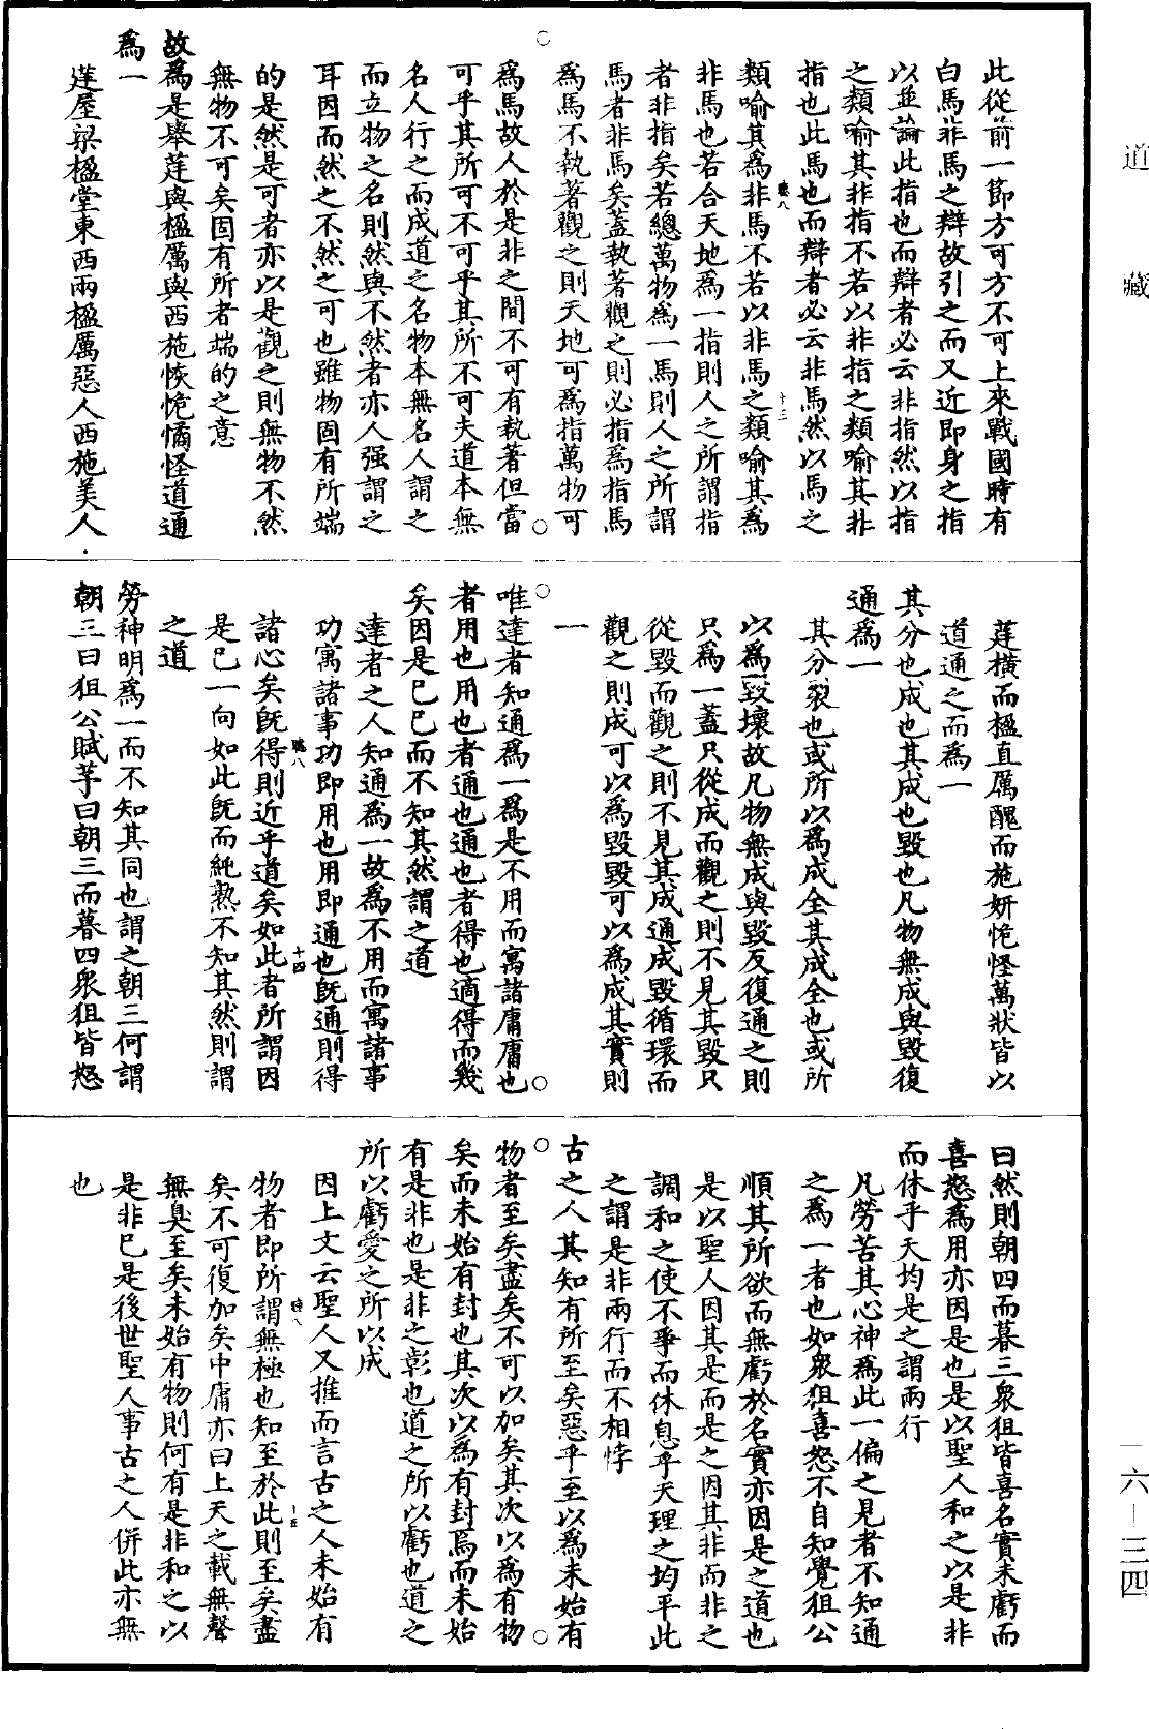 道藏
一六—三四
此從前一節方可方不可上來戰國時有
白馬非馬之辯故引之而又近即身之指
以並論此指也而辯者必云非指然以指
之類喻其非指不若以非指之類喻其非
指也此馬也而辯者必云非馬然以馬之
類喻其為非馬不若以非馬之類喻其為
非馬也若合天地為一指則人之所謂指
者非指矣若總萬物為一馬則人之所謂
馬者非馬矣蓋執著觀之則必指為指馬
為馬不執著觀之則天地可為指萬物可
為馬故人於是非之間不可有執著但當
可乎其所可不可乎其所不可夫道本無
名人行之而成道之名物本無名人謂之
而立物之名則然與不然者亦人强謂之
耳因而然之不然之可也雖物固有所端
的是然是可者亦以是觀之則無物不然
無物不可矣固有所者端的之意
故為是舉莛與楹厲與西施恢恑憰怪道通
為一
莛屋梁楹堂東西兩楹厲惡人西施美人
莛橫而楹直厲醜而施妍恑怪萬狀皆以
道通之而為一
其分也成也其成也毀也凡物無成與毀復
通為一
其分裂也或所以為成全其成全也或所
以為毀壞故凡物無成與毀反復通之則
只為一蓋只從成而觀之則不見其毀只
從毀而觀之則不見其成通成毀循環而
觀之則成可以為毀毀可以為成其實則
一
唯達者知通為一為是不用而寓諸庸庸也
者用也用也者通也通也者得也適得而幾
矣因是已已而不知其然謂之道
達者之人知通為一故為不用而寓諸事
功寓諸事功即用也用即通也既通則得
諸心矣既得則近乎道矣如此者所謂因
是已一向如此既而純熟不知其然則謂
之道
勞神明為一而不知其同也謂之朝三何謂
朝三曰狙公賦芧曰朝三而暮四衆狙皆怒
曰然則朝四而暮三衆狙皆喜名實未虧而
喜怒為用亦因是也是以聖人和之以是非
而休乎天均是之謂兩行
凡勞苦其心神為此一偏之見者不知通
之為一者也如衆狙喜怒不自知覺狙公
順其所欲而無虧於名實亦因是之道也
是以聖人因其是而是之因其非而非之
調和之使不爭而休息乎天理之均平此
之謂是非兩行而不相悖
古之人其知有所至矣惡乎至以為未始有
物者至矣盡矣不可以加矣其次以為有物
矣而未始有封也其次以為有封焉而未始
有是非也是非之彰也道之所以虧也道之
所以虧愛之所以成
因上文云聖人又推而言古之人未始有
物者即所謂無極也知至於此則至矣盡
矣不可復加矣中庸亦曰上天之載無聲
無臭至矣未始有物則何有是非和之以
是非已是後世聖人事古之人併此亦無
也